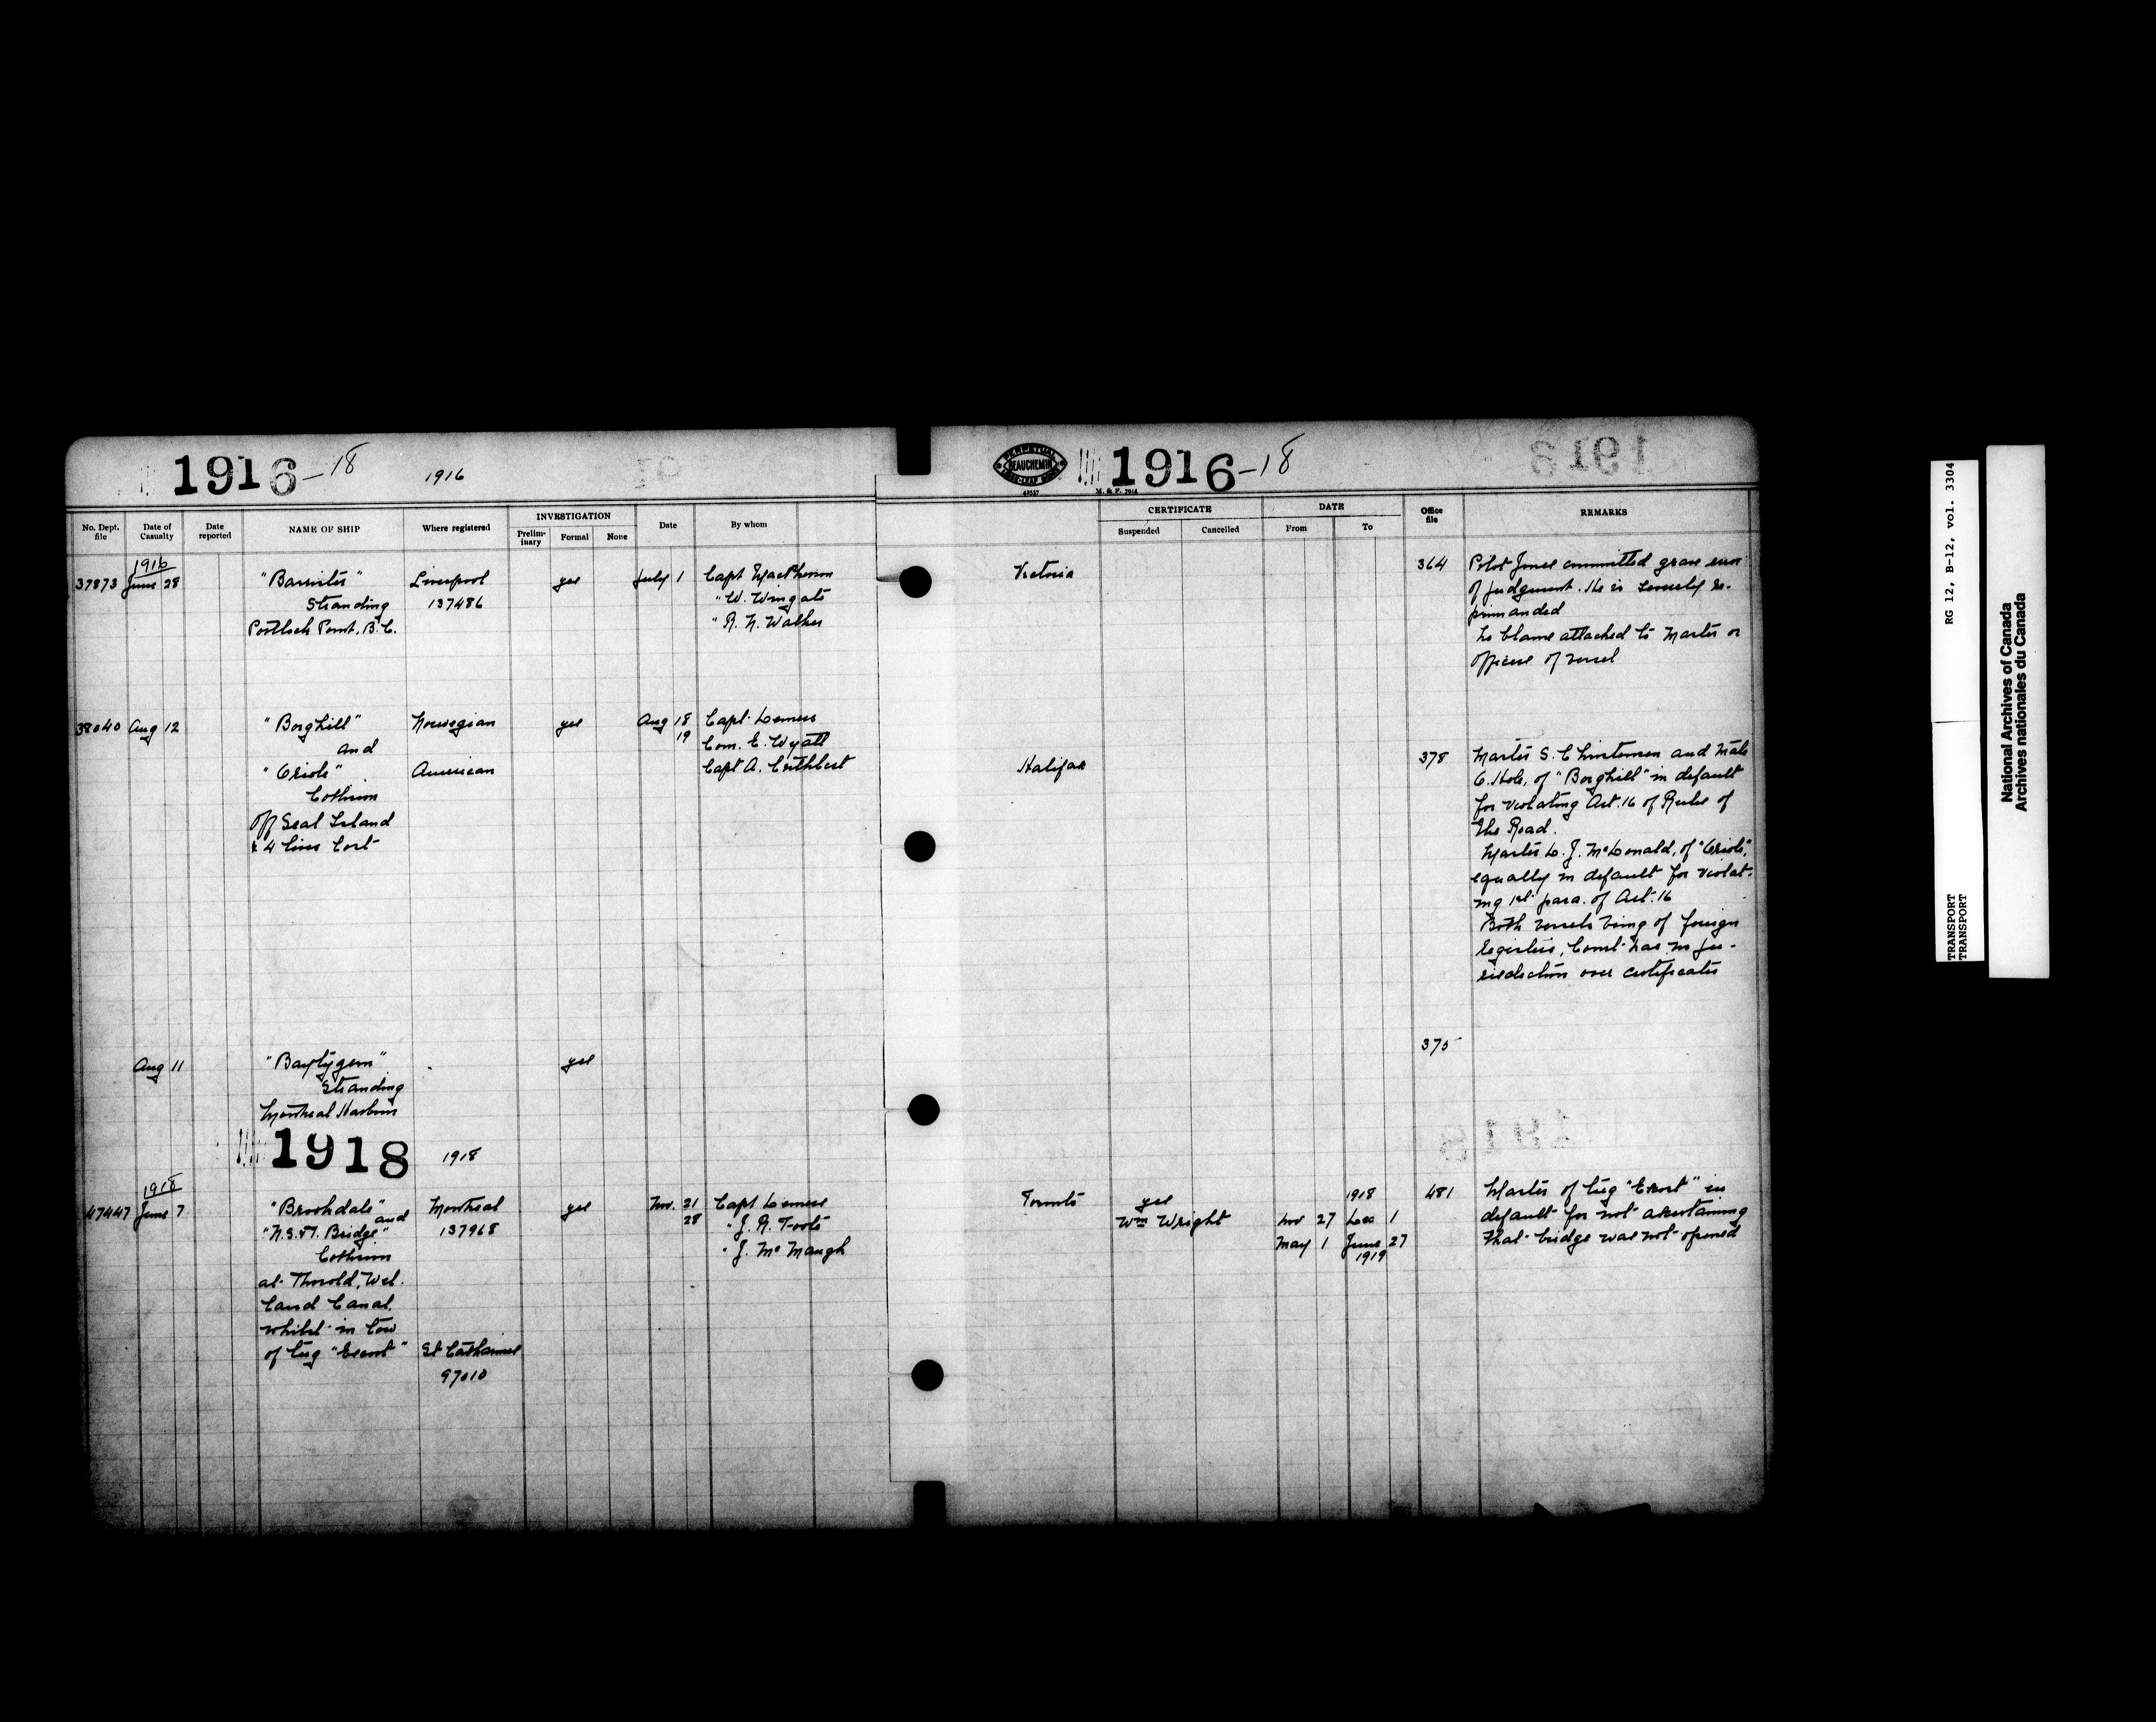 1916-18
1916
No. Dept. file
Date of Casualty
Date reported
NAME OF SHIP
Where registered
INVESTIGATION
Prelim-inary
Formal
None
Date
By whom
1916
37873 June 28
"Barrister" Liverpool yes July 1 Capt MacPherson
Stranding 137486 " W. Wingate
Portlock Point, B.C. " R. N. Walker
38040 Aug 12 "Borghild" Norwegian yes Aug 18 Capt. Demers
and 19 Com. E. Wyatt
"Oriole" American Capt A. Cuthbert
Collision
off Seal Island
& 4 lives lost
Aug 11 yes
Stranding
Montreal Harbour
1918
1918
1918
47447 June 7 "Brookdale" and Montreal yes Nov. 21 Capt Demers
"N.S.&T. Bridge" 137968 28 " J. R. Foote
Collision " J. McMaugh
at Thorold, Wel-
land Canal.
whilst in tow
of tug "Escort" St Catharines
97010
PERPETUAL
BEAUCHEMIN
LOOSE-LEAF BOOKS
42537
M. & F. 701A
1916-18
1918
CERTIFICATE
Suspended
Cancelled
DATE
From
To
Office file
REMARKS
Victoria 364 Pilot Jones committed grave error
of judgment. He is severely re-
primanded
No blame attached to Master or
officers of vessel
Halifax 378 Master S. Christensen and Mate
O. Hole, of "Borghild" in default
for violating Art. 16 of Rules of
the Road.
Master D. J. McDonald, of "Oriole",
equally in default for violat-
ing 1st para. of Art. 16
Both vessels being of foreign
registers, Court has no ju-
risdiction over certificates
375
1918
Toronto yes 1918 481 Master of tug "Escort" in
Wm Wright Nov 27 Dec 1 default for not ascertaining
May 1 June 27 that bridge was not opened
1919
RG 12, B-12, vol. 3304
TRANSPORT
TRANSPORT
National Archives of Canada
Archives nationales du Canada